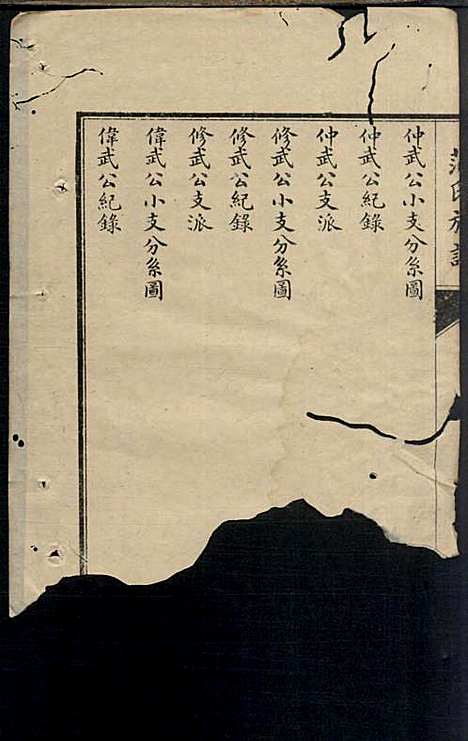 氏族譜
仲武公小支分系圖
仲武公紀錄
仲武公支派
修武公小支分系圖
修武公紀錄
修武公支派
偉武公小支分系圖
偉武公紀錄